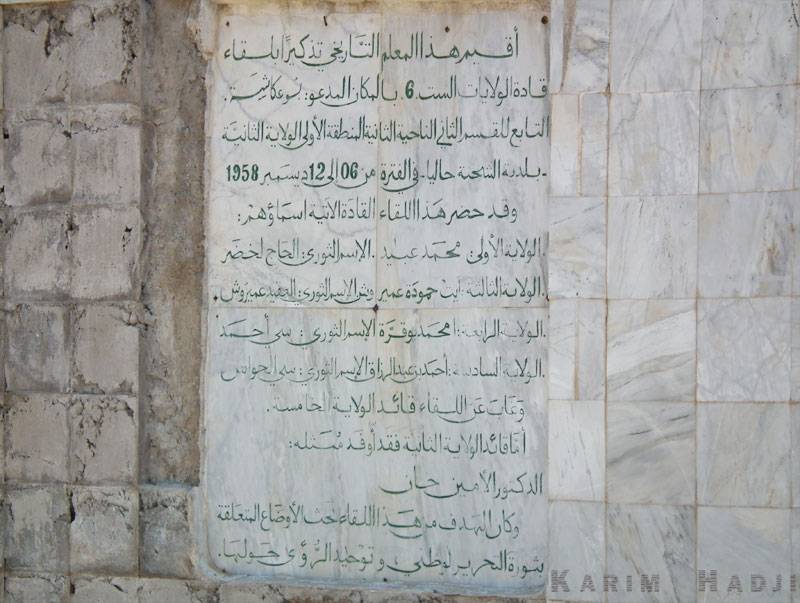 أقيم هذا المعلم التّاريخي تذكيرًا بلقاء
قادة الولايات الست .6. بالمكان المدعو: بوعكاشة.
التابع للقسم الثاني الناحية الثانية المنطقة الأولى الولاية الثانيّة
-بلدية الشحنة حاليا- في الفترة من 06 إلى 12 ديسمبر 1958
وقد حضر هذا اللقاء القادة الآتية اسماؤهم:
.الولاية الأولى محمد عبيد .الإسم الثوري: الحاج لخضر
.الولاية الثالثة: ايت حمودة عميروش الإسم الثوري: العقيد عميروش
.الولاية الرابعة: امحمد بوقرّة الإسم الثوري: سي أحمد
.الولاية السادسة: أحمد بن عبد الرزاق الإسم الثوري: سي الحواس
وغاب عن اللقاء قائد الولاية الخامسة.
أما قائد الولاية الثانية فقد أوفد مُمثله:
الدكتور الأمين خان
وكان الهدف من هذا اللقاء بحث الأوضاع المتعلقة
بثورة التحرير لوطني وتوحيد الرُّؤى حولها.
KARIM HADJI